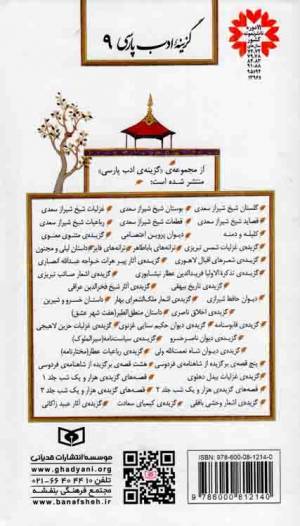 گزینهٔ ادب پارسی ۹
از مجموعه‌ی «گزینه‌ی ادب پارسی»
منتشر شده است:
گلستان شیخ شیراز سعدی بوستان شیخ شیراز سعدی غزلیات شیخ شیراز سعدی
قصاید شیخ شیراز سعدی قطعات شیخ شیراز سعدی رباعیات شیخ شیراز سعدی
کلیله و دمنه دیوان پروین اعتصامی گزیده‌ی مثنوی معنوی
گزیده‌ی غزلیات شمس تبریزی ترانه‌های باباطاهر ترانه‌های فایز داستان لیلی و مجنون
گزیده‌ی شعرهای اقبال لاهوری گزیده‌ی آثار پیر هرات خواجه عبدالله انصاری
گزیده‌ی تذکرةالاولیا فریدالدین عطار نیشابوری گزیده‌ی اشعار صائب تبریزی
گزیده‌ی تاریخ بیهقی گزیده‌ی آثار شیخ فخرالدین عراقی
دیوان حافظ شیرازی گزیده‌ی اشعار ملک‌الشعرای بهار داستان خسرو و شیرین
گزیده‌ی اخلاق ناصری داستان منطق‌الطیر (هفت شهر عشق)
گزیده‌ی قابوسنامه گزیده‌ی دیوان حکیم سنایی غزنوی گزیده‌ی غزلیات حزین لاهیجی
گزیده‌ی دیوان ناصرخسرو گزیده‌ی سیاست‌نامه (سیرالملوک)
گزیده‌ی دیوان شاه نعمت‌الله ولی گزیده‌ی رباعیات عطار (مختارنامه)
پنج قصه‌ی برگزیده از شاهنامه‌ی فردوسی هشت قصه‌ی برگزیده از شاهنامه‌ی فردوسی
گزیده‌ی غزلیات بیدل دهلوی قصه‌های گزیده‌ی هزار و یک شب جلد ۱
قصه‌های گزیده‌ی هزار و یک شب جلد ۲ قصه‌های گزیده‌ی هزار و یک شب جلد ۳
گزیده‌ی اشعار وحشی بافقی گزیده‌ی کیمیای سعادت گزیده‌ی آثار عبید زاکانی
موسسه انتشارات قدیانی
www.ghadyani.org
تلفن: ۱۰ ۴۴ ۴۰ ۶۶-۰۲۱
مجتمع فرهنگی بنفشه
www.banafsheh.ir
ISBN: 978-600-08-1214-0
9 786000 812140